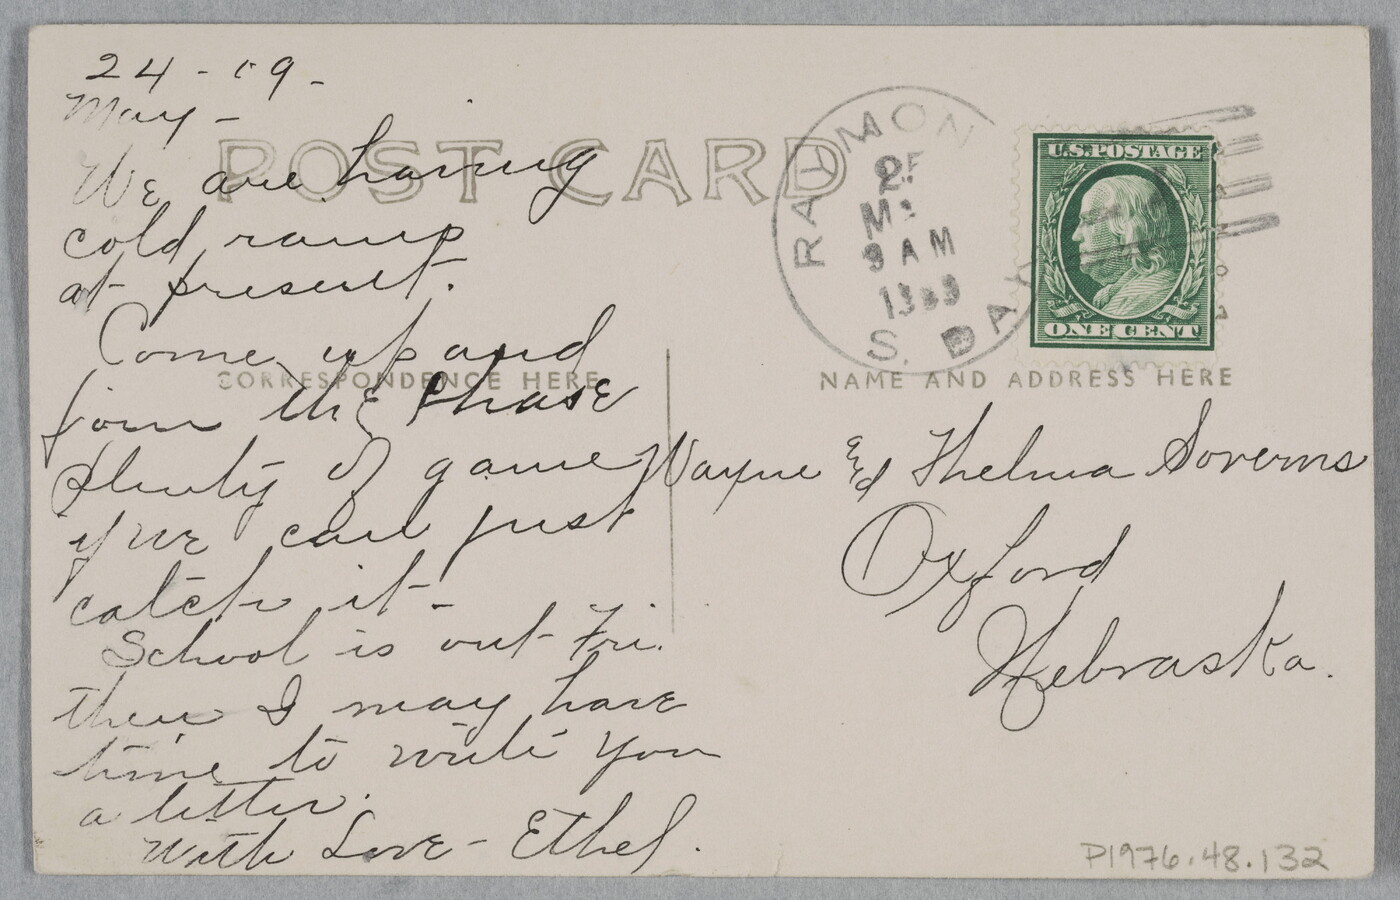 24 - 09 -
May -
We are having
cold ramp
at present.
Come up and
join the Phase
plenty of game
if we can just
catch it -
School is out Fri.
then I may have
time to write you
a letter.
With Love - Ethel.
POST CARD
CORRESPONDENCE HERE
RAYMON
9 AM
S. DAK
U.S. POSTAGE
ONE CENT
NAME AND ADDRESS HERE
Wayne and Thelma Soverns
Oxford
Nebraska.
P1976.48.132